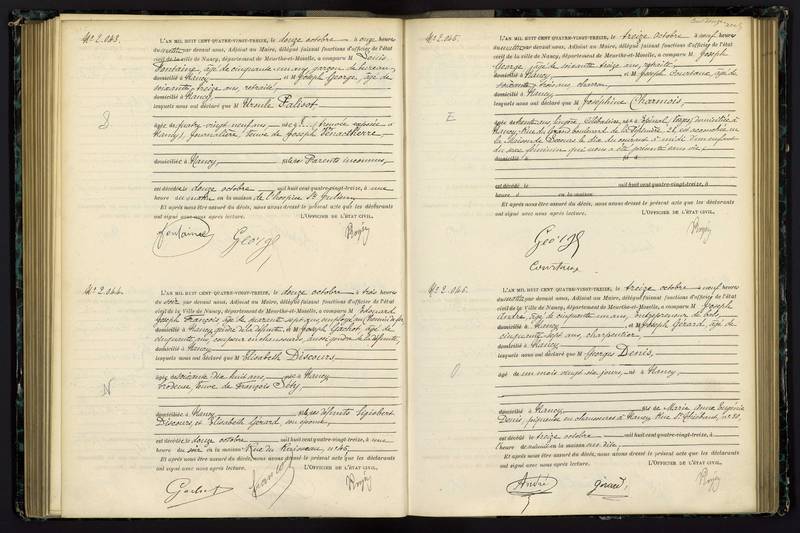 No 2.043.
L'AN MIL HUIT CENT QUATRE-VINGT-TREIZE, le douze octobre à onze heures
du matin par devant nous, Adjoint au Maire, délégué faisant fonctions d'officier de l'état
civil de la ville de Nancy, département de Meurthe-et-Moselle, a comparu M Louis
Fontaine, âgé de cinquante un ans, garçon de bureau,
domicilié à Nancy et M Joseph George, âgé de
soixante treize ans, retraité,
domicilié à Nancy,
lesquels nous ont déclaré que M Ursule Palisot
âgée de quatre vingt neuf ans, née à trouvée exposée à
Nancy, journalière, veuve de Joseph
S
domiciliée à Nancy fille de Parents inconnus,
est décédée le douze octobre mil huit cent quatre-vingt-treize, à une
heure du matin, en la maison de l'hospice St Julien
Et après nous être assuré du décès, nous avons dressé le présent acte que les déclarants
ont signé avec nous après lecture. L'OFFICIER DE L'ÉTAT CIVIL,
Fontaine
George
No 2.044.
L'AN MIL HUIT CENT QUATRE-VINGT-TREIZE, le douze octobre à trois heures
du soir par devant nous, Adjoint au Maire, délégué faisant fonctions d'officier de l'état
civil de la Ville de Nancy, département de Meurthe-et-Moselle, a comparu M Edouard
Joseph François, âgé de quarante sept ans, employé au chemin de fer,
domicilié à Nancy, gendre de la défunte, et M Joseph Gachot, âgé de
cinquante ans, coupeur en chaussures, aussi gendre de la défunte,
domicilié à Nancy
lesquels nous ont déclaré que M Elisabeth Discours
âgée de soixante dix huit ans, née à Nancy
brodeuse, veuve de François
N
domiciliée à Nancy fille des défunts Sigisbert
Discours, et Elisabeth Gérard, son épouse,
est décédée le douze octobre mil huit cent quatre-vingt-treize, à une
heure du soir en la maison Rue du Ruisseau, no 45,
Et après nous être assuré du décès, nous avons dressé le présent acte que les déclarants
ont signé avec nous après lecture. L'OFFICIER DE L'ÉTAT CIVIL,
Gachot
No 2.045.
L'AN MIL HUIT CENT QUATRE-VINGT-TREIZE, le treize octobre à neuf heures
du matin par devant nous, Adjoint au Maire, délégué faisant fonctions d'officier de l'état
civil de la ville de Nancy, département de Meurthe-et-Moselle, a comparu M Joseph
George, âgé de soixante treize ans, retraité,
domicilié à Nancy, et M Joseph Courtaux, âgé de
soixante trois ans,
domicilié à Nancy,
lesquels nous ont déclaré que M Joséphine Charmois,
E
âgée de trente ans, lingère, célibataire, née à Epinal, Vosges, domiciliée à
Nancy, Rue du Grand boulevard de la Pépinière, est accouchée en
la Maison de Secours le dix du courant à midi d'un enfant
du sexe féminin qui nous a été présenté sans vie.
domicilié à
est décédé le mil huit cent quatre-vingt-treize, à
heure en la maison
Et après nous être assuré du décès, nous avons dressé le présent acte que les déclarants
ont signé avec nous après lecture. L'OFFICIER DE L'ÉTAT CIVIL,
George
Courtaux
No 2.046.
L'AN MIL HUIT CENT QUATRE-VINGT-TREIZE, le treize octobre à neuf heures
du matin par devant nous, Adjoint au Maire, délégué faisant fonctions d'officier de l'état
civil de la Ville de Nancy, département de Meurthe-et-Moselle, a comparu M Joseph
André, âgé de cinquante un ans, entrepreneur de bois,
domicilié à Nancy et M Joseph Gérard, âgé de
cinquante sept ans, charpentier,
domicilié à Nancy
lesquels nous ont déclaré que M Georges Denis,
O
âgé de un mois vingt six jours, né à Nancy,
domicilié à Nancy, fils de Marie Anne Eugénie
Denis, piqueuse en chaussures à Nancy Rue St Thiébaut, no 20,
est décédé le treize octobre mil huit cent quatre-vingt-treize, à
heure de en la maison susdite,
Et après nous être assuré du décès, nous avons dressé le présent acte que les déclarants
ont signé avec nous après lecture. L'OFFICIER DE L'ÉTAT CIVIL,
André
Gérard